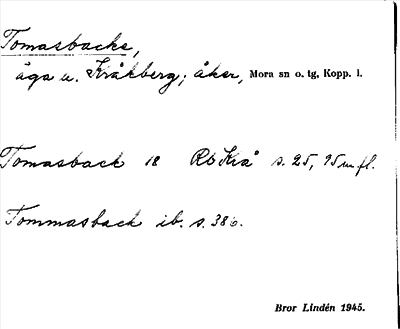 Tomasbacke,
äga u. Kråkberg; åker, Mora sn o. tg, Kopp. l.
Tomasback 18 Rb Krå s. 25, 95 m fl.
Tommasback ib. s. 386.
Bror Lindén 1945.